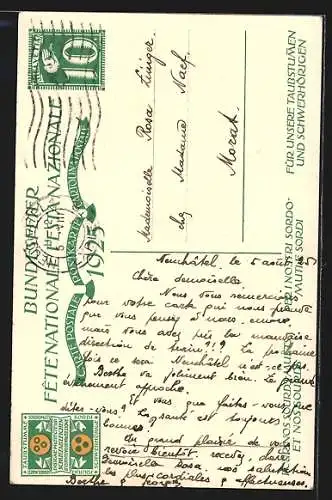 BUNDESFEIER
FÊTE NATIONALE FESTA NAZIONALE
CARTE POSTALE POSTKARTE CARTOLINA POSTALE
1925
HELVETIA
10
FÜR UNSERE TAUBSTUMMEN
UND SCHWERHÖRIGEN
POUR NOS SOURDS-MUETS PER I NOSTRI SORDO-
ET NOS SOURDS MUTI E SORDI
Mademoiselle Rosa
chez Madame Naef
Morat.
Neuchâtel, le 5 août 25
Chère demoiselle
Nous vous remercions
pour votre carte qui nous prouve
que vous pensez à nous encore,
mais vous avez pris la mauvaise
direction de La prochaine
fois ce sera Neuchâtel n'est-ce pas.
Bertha va joliment bien. Le grand
évènement approche.
Et vous que faites-vous, que
dites-vous? La santé est toujours
bonne.
Au grand plaisir de vous
revoir bientôt, recevez, chère
demoiselle Rosa, nos salutations
les plus cordiales & affectueuses.
Berthe &